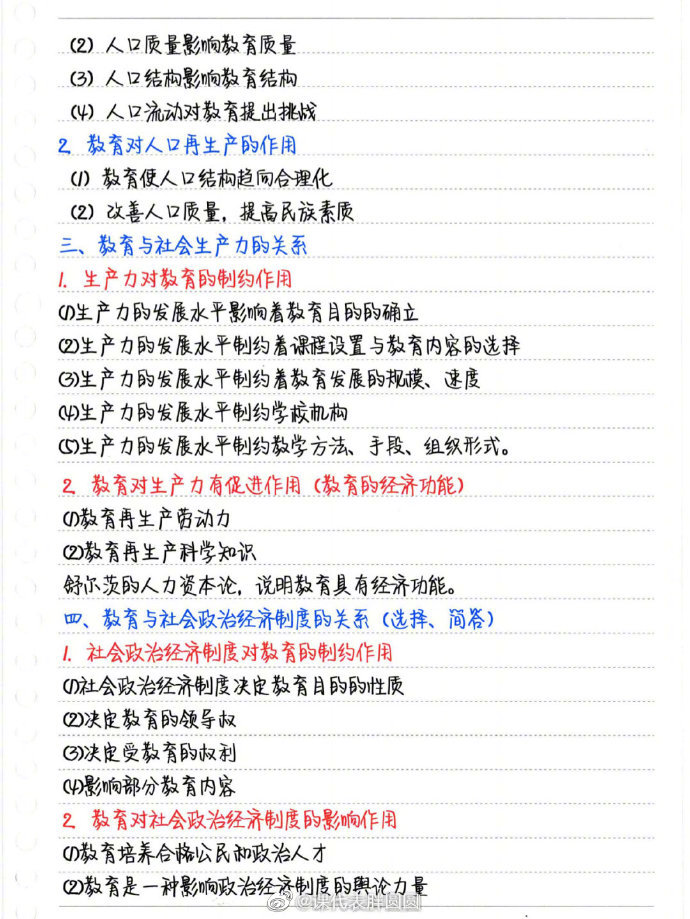 (2) 人口质量影响教育质量
(3) 人口结构影响教育结构
(4) 人口流动对教育提出挑战
2. 教育对人口再生产的作用
(1) 教育使人口结构趋向合理化
(2) 改善人口质量，提高民族素质
三、教育与社会生产力的关系
1. 生产力对教育的制约作用
(1)生产力的发展水平影响着教育目的的确立
(2)生产力的发展水平制约着课程设置与教育内容的选择
(3)生产力的发展水平制约着教育发展的规模、速度
(4)生产力的发展水平制约学校机构
(5)生产力的发展水平制约教学方法、手段、组织形式。
2. 教育对生产力有促进作用（教育的经济功能）
(1)教育再生产劳动力
(2)教育再生产科学知识
舒尔茨的人力资本论，说明教育具有经济功能。
四、教育与社会政治经济制度的关系（选择、简答）
1. 社会政治经济制度对教育的制约作用
(1)社会政治经济制度决定教育目的的性质
(2)决定教育的领导权
(3)决定受教育的权利
(4)影响部分教育内容
2. 教育对社会政治经济制度的影响作用
(1)教育培养合格公民和政治人才
(2)教育是一种影响政治经济制度的舆论力量
@课代表胖圆圆